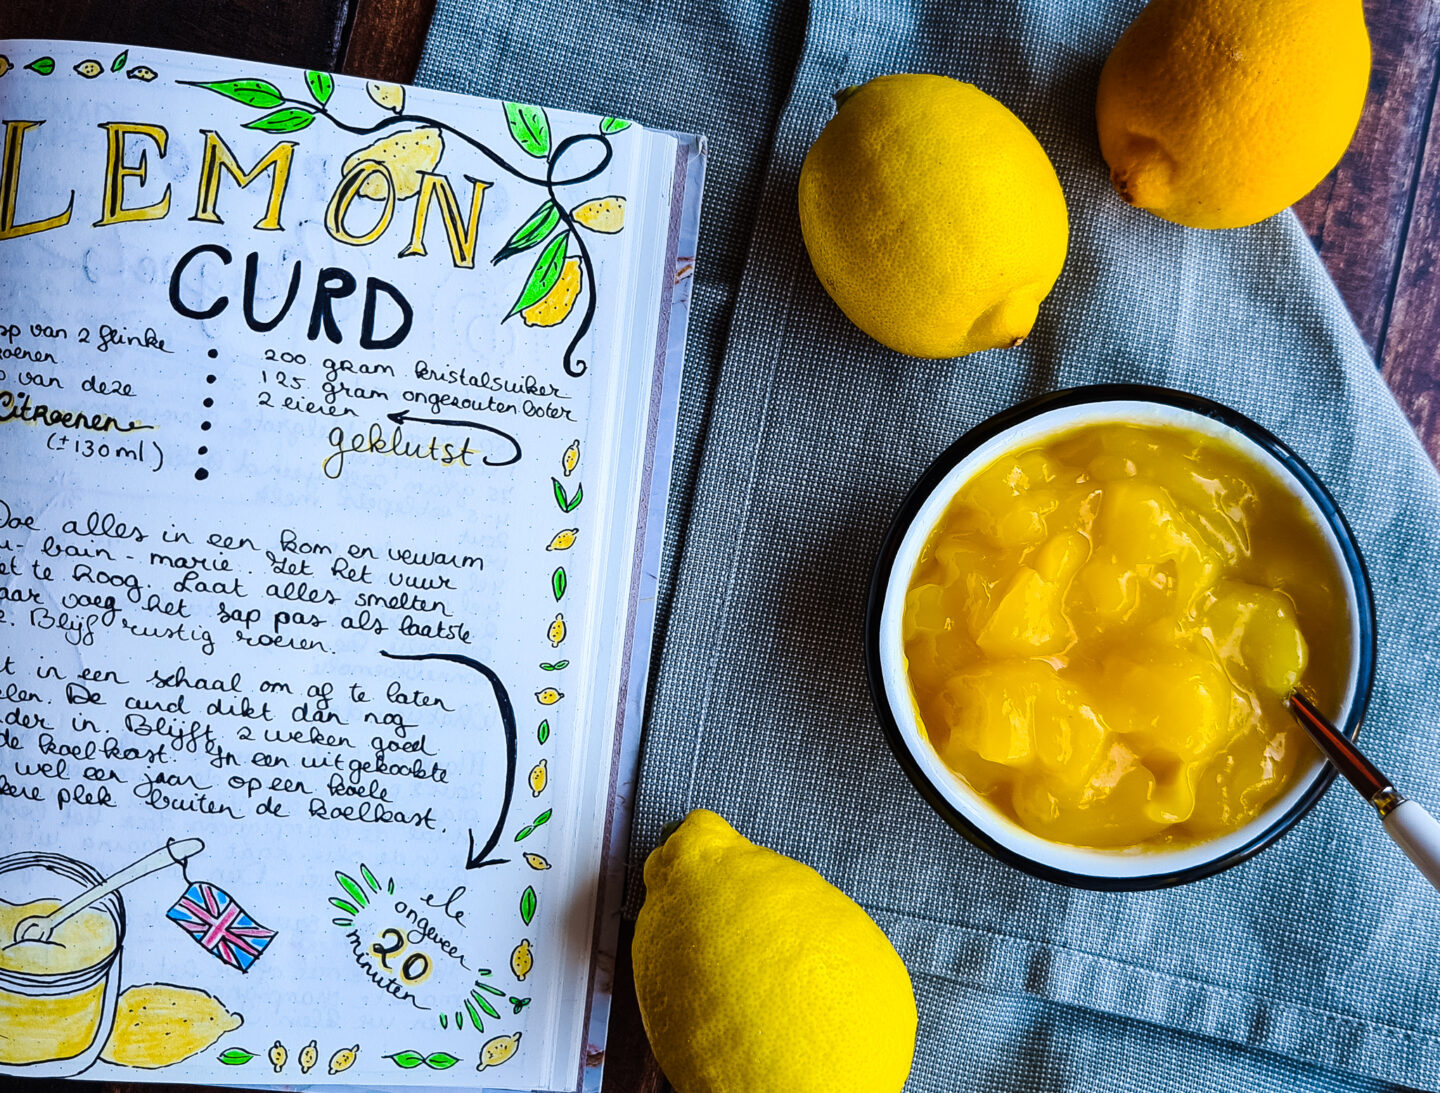 LEMON
CURD
sap van 2 flinke
citroenen
van deze
Citroenen
(± 130ml)
200 gram kristalsuiker
125 gram ongezouten boter
2 eieren
geklutst
Doe alles in een kom en verwarm
au-bain-marie. Zet het vuur
niet te hoog. Laat alles smelten
maar voeg het sap pas als laatste
toe. Blijf rustig roeren.
in een schaal om af te laten
koelen. De curd dikt dan nog
verder in. Blijft 2 weken goed
de koelkast. In een uitgekookte
wel een jaar op een koele
plek buiten de koelkast.
ongeveer
20
minuten